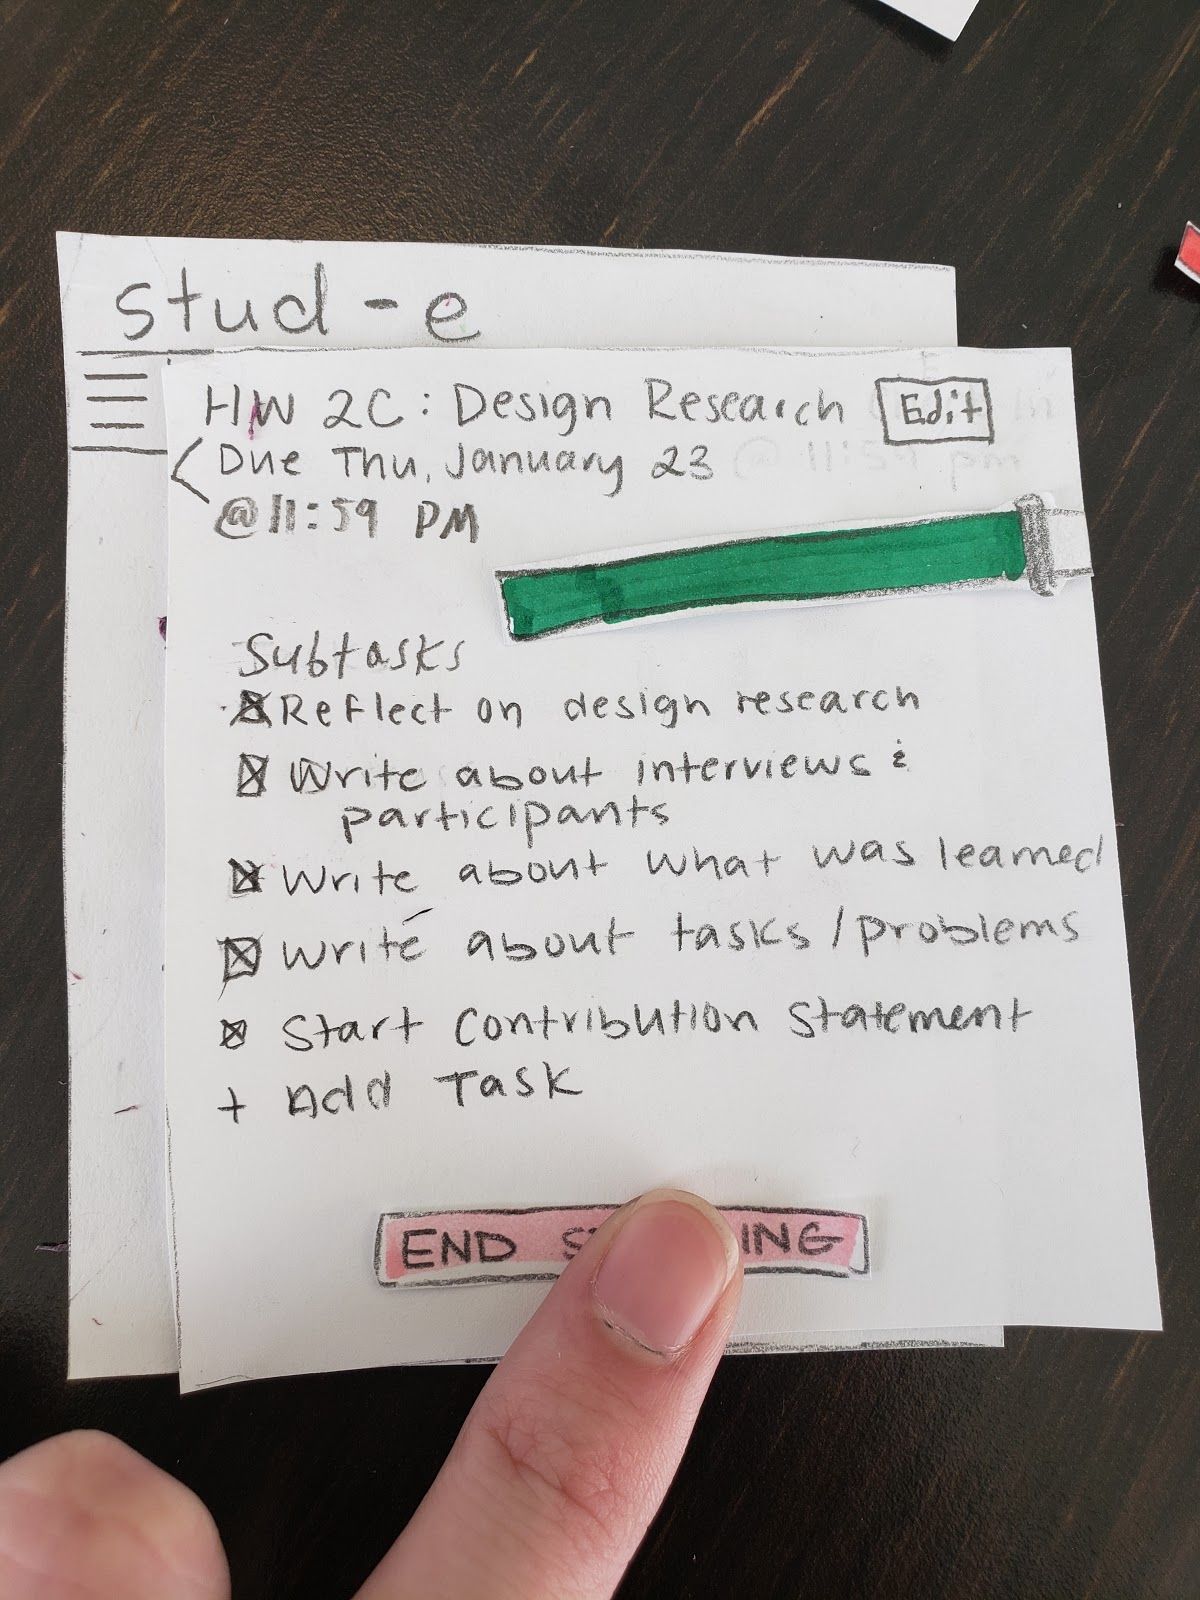 stud-e
HW 2C: Design Research
Edit
Due Thu, January 23
@11:59 PM
Subtasks
Reflect on design research
Write about interviews &
participants
Write about what was learned
Write about tasks/problems
Start contribution statement
+ Add Task
END